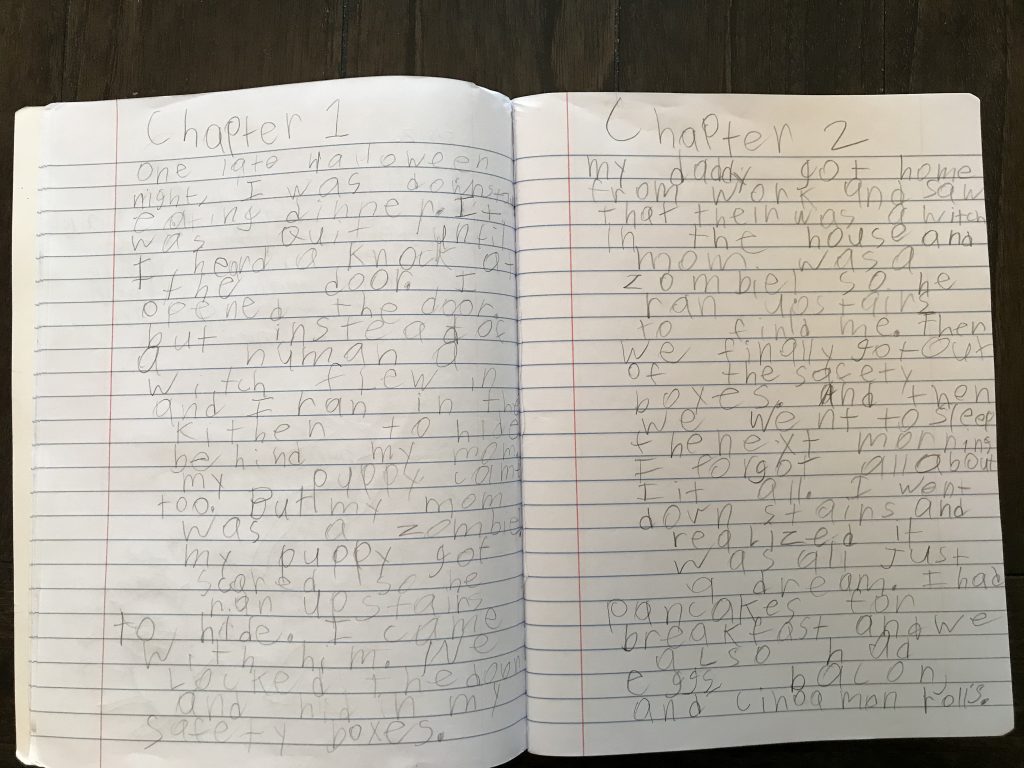 Chapter 1
one late Halloween
night, I was downsta
eating dinner. It
was quit until
I heard a knock at
the door. I
opened the door
but instead of
a human a
witch flew in
and I ran in the
kithen to hide
behind my mom
my puppy came
too. But my mom
was a zombie!
my puppy got
scared so he
ran upstairs
to hide. I came
with him. We
locked the door
and hid in my
safety boxes.
Chapter 2
my daddy got home
from work and saw
that their was a witch
in the house and
mom was a
zombie! so he
ran upstairs
to find me. Then
we finally got out
of the safety
boxes. And then
we went to sleep
the next morning
I forgot all about
it all. I went
down stairs and
realized it
was all just
a dream. I had
pancakes for
breakfast and we
also had
eggs bacon,
and cinnamon rolls.